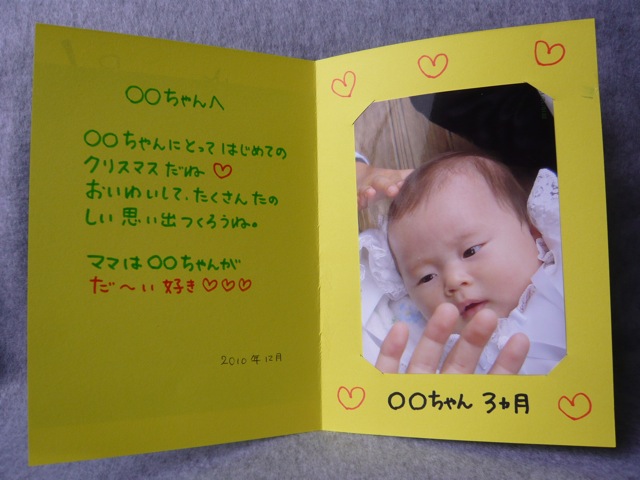 〇〇ちゃんへ
〇〇ちゃんにとってはじめての
クリスマスだね♡
おいわいして、たくさんたの
しい思い出つくろうね。
ママは〇〇ちゃんが
だ〜い好き♡♡♡
2010年12月
〇〇ちゃん 3ヵ月